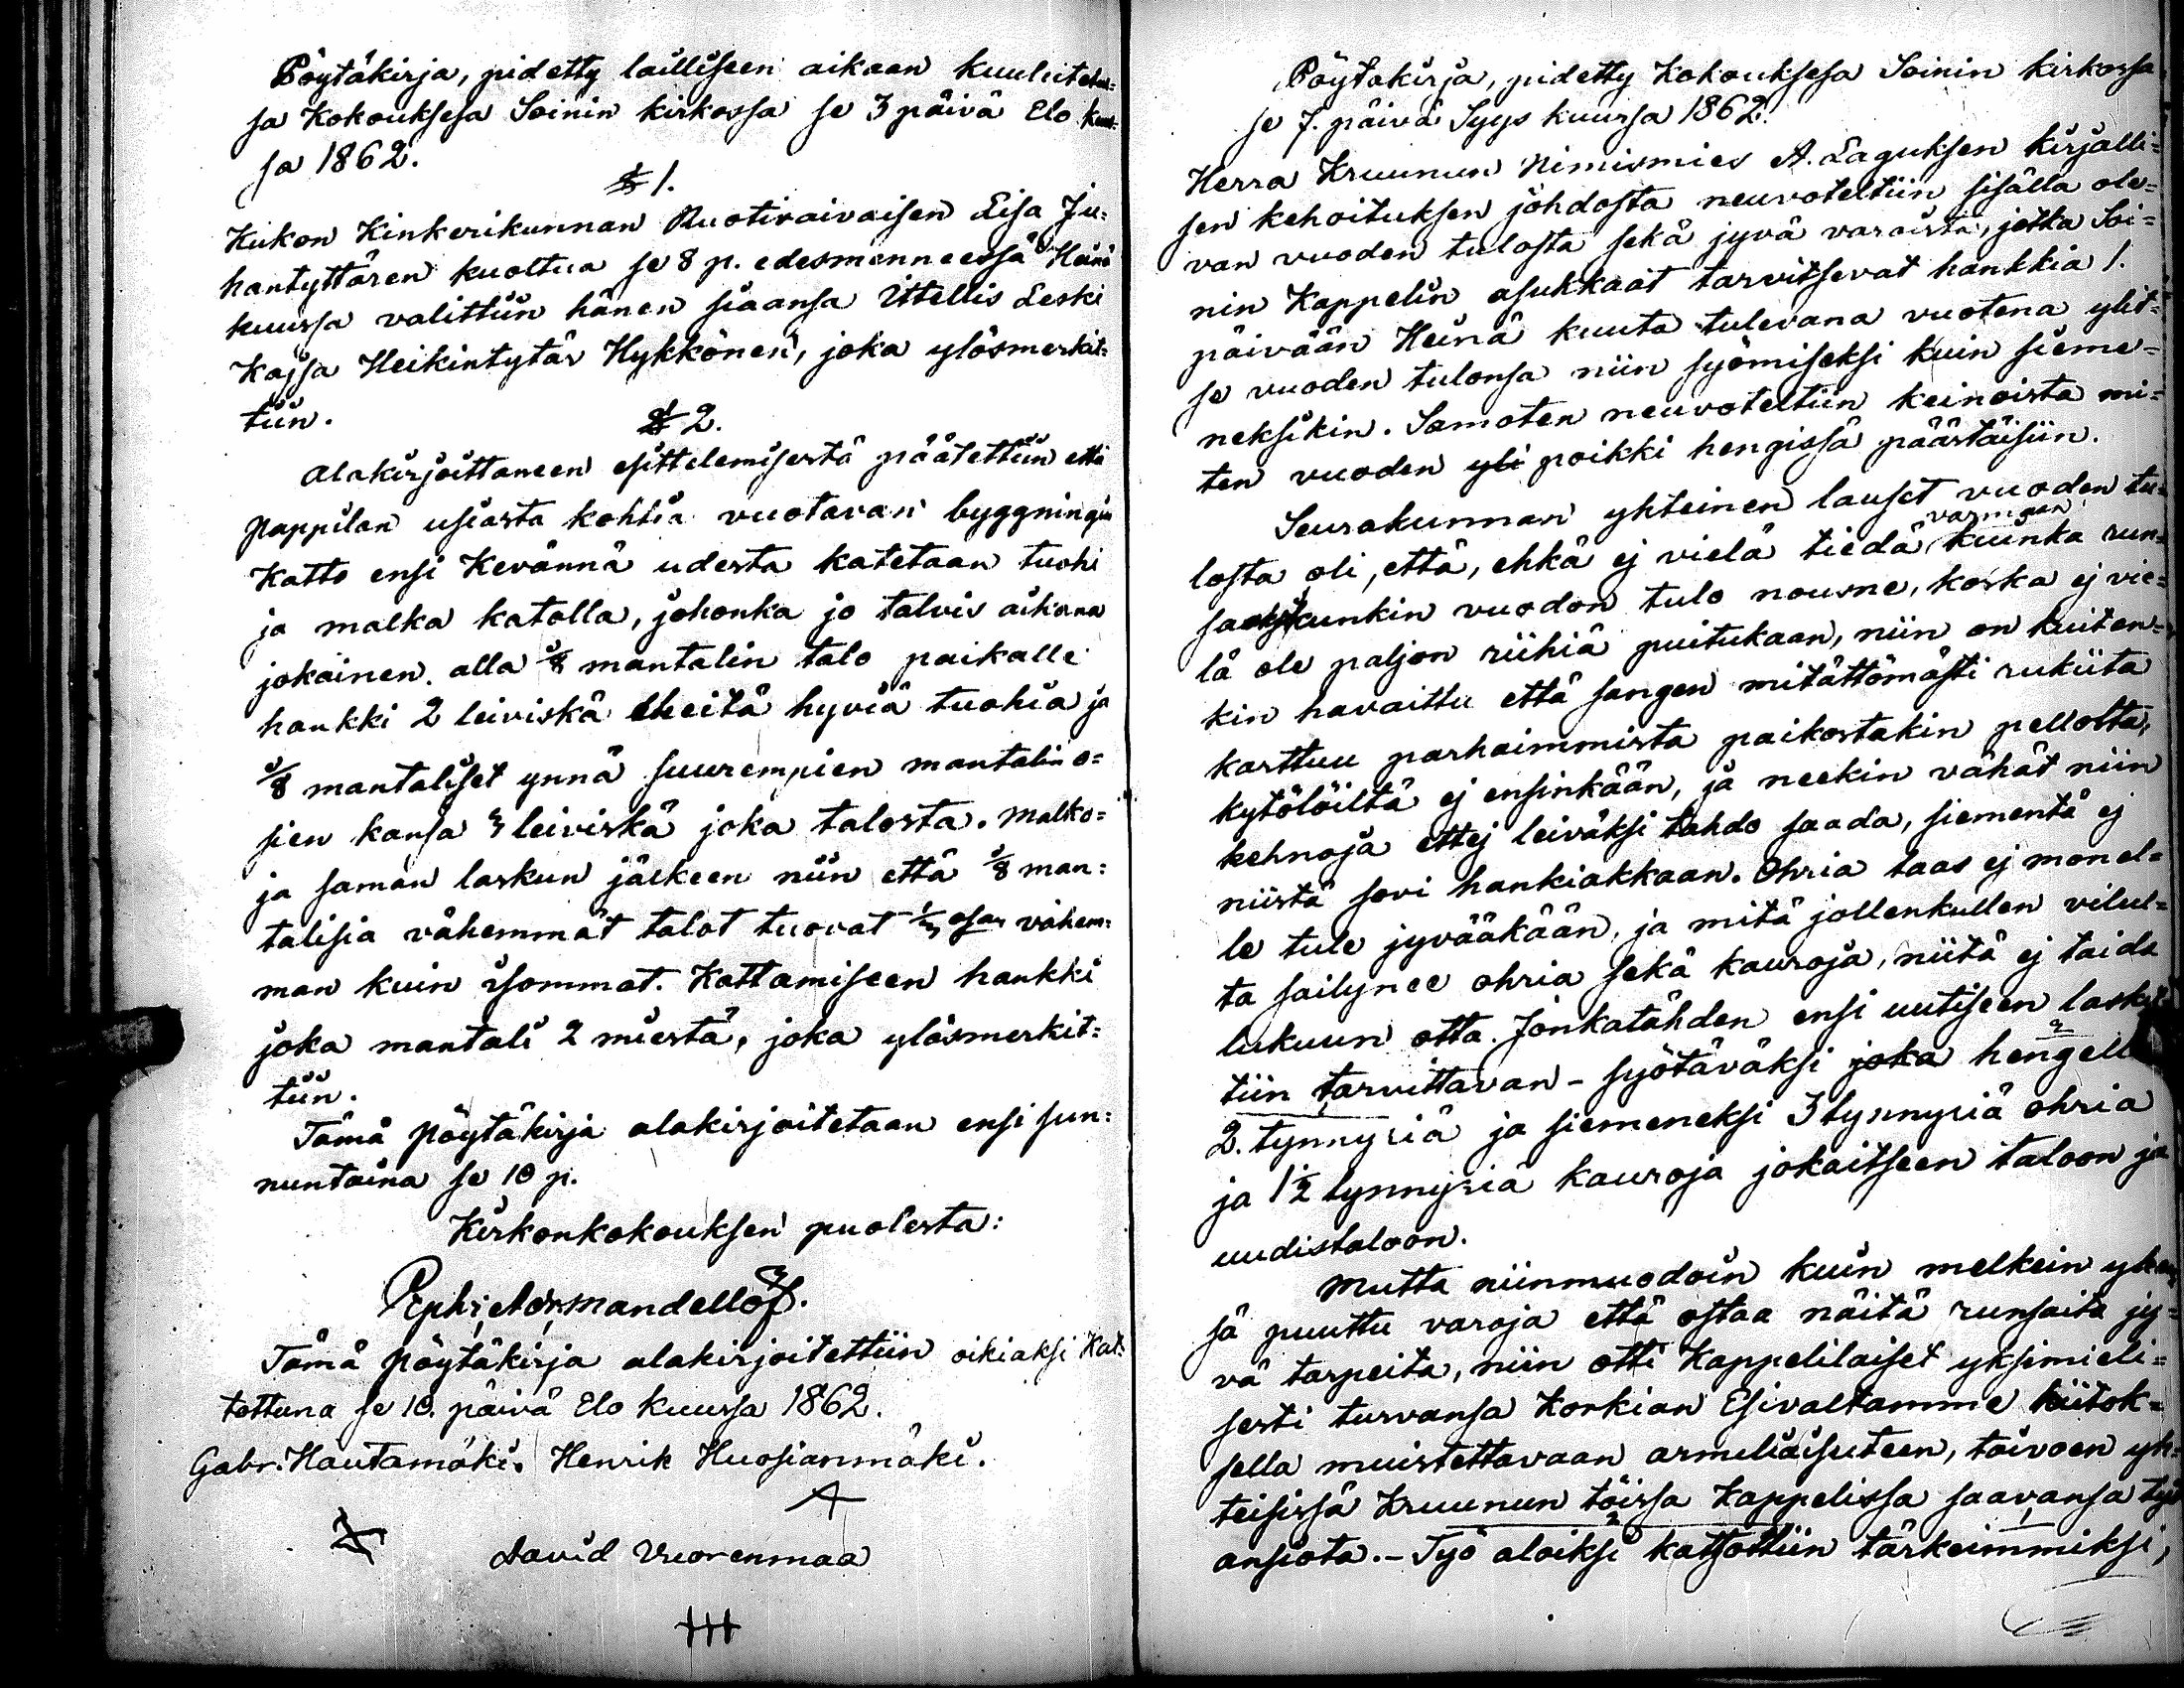 Pöytäkirja, pidetty lailliseen aikaan kuulutetus=
sa Kokouksesa Soinin kirkossa se 3 päivä Elo kuus=
sa 1862.
§ 1.
Kukon Kinkerikunnan Ruotivaivaisen Lisa Ju=
hantyttären kuoltua se 8 p. edesmenneessä Heinä
kuussa valittiin hänen siaansa Ittellis Leski
Kajsa Heikintytär Hykkönen, joka ylösmerkit=
tiin.
§ 2.
Alakirjoittaneen esittelemisestä päätettiin että
pappilan usiasta kohtia vuotavan byggningin
Katto ensi Kevännä udesta katetaan tuohi
ja malka katolla, johonka jo talvis aikana
jokainen alla 3/8 mantalin talo paikalle
hankki 2 leiviskä eheitä hyviä tuohia ja
3/8 mantaliset ynnä suurempien mantalin o=
sien kansa 3 leiviskä joka talosta. Malko=
ja saman laskun jälkeen niin että 3/8 man=
talisia vähemmät talot tuovat 1/3 osan vähem=
män kuin isommat. Kattamiseen hankki
joka mantali 2 miestä, joka ylösmerkit=
tiin.
Tämä pöytäkirja alakirjoitetaan ensi sun=
nuntaina se 10 p.
Kirkonkokouksen puolesta:
Tämä pöytäkirja alakirjoitettiin oikiaksi Kat=
tottuna se 10. päivä Elo kuussa 1862.
Gabr. Hautamäki. Henrik Huosianmäki.
David Vuorenmaa
Pöytäkirja, pidetty Kokouksesa Soinin kirkossa
se 7. päivä Syys kuussa 1862.
Herra Kruunun Nimismies A. Laguksen kirjalli=
sen kehoituksen johdosta neuvoteltiin sisällä ole=
van vuoden tulosta sekä jyvä varoista, jotka Soi=
nin Kappelin asukkaat tarvitsevat hankkia 1.
päivään Heinä kuuta tulevana vuotena ylit=
se vuoden tulonsa niin syömiseksi kuin sieme=
neksikin. Samoten neuvoteltiin keinoista mi=
ten vuoden yli poikki hengissä päästäisiin.
Seurakunnan yhteinen lauset vuoden tu=
losta oli, että, ehkä ej vielä tiedä varmaan kuinka run=
saaksikunkin vuodon tulo nousne, koska ej vie=
lä ole paljon riihiä puitukaan, niin on kuiten=
kin havaittu että sangen mitättömästi rukiita
karttuu parhaimmista paikostakin pellolta,
kytölöiltä ej ensinkään, ja neekin vähät niin
kehnoja ettej leiväksi tahdo saada, siementä ej
niistä sovi hankiakkaan. Ohria taas ej monel=
le tule jyvääkään, ja mitä jollenkullen vilul=
ta sailynee ohria sekä kauroja, niitä ej taida
lukuun otta. Jonkatähden ensi uutiseen laskit=
tiin tarvittavan – syötäväksi joka hengelle
2. tynnyriä ja siemeneksi 3 tynnyriä ohria
ja 1 1/2 tynnyriä kauroja jokaitseen taloon ja
uudistaloon.
Mutta niinmuodoin kuin melkein yh=
sä puuttu varoja että ostaa näitä runsaita jy=
vä tarpeita, niin otti Kappelilaiset yksimieli=
sesti turvansa Korkian Esivaltamme kiitok=
sella muistettavaan armeliaisuteen, toivoen yh=
teisissä Kruunun töissä kappelissa saavansa työ
ansiota. – Työ aloiksi katsottiin tärkeimmiksi,